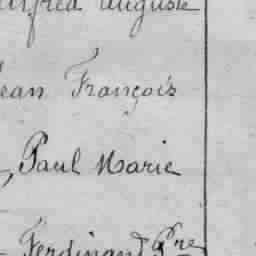 Alfred Auguste
Jean François
, Paul Marie
Ferdinand Pre